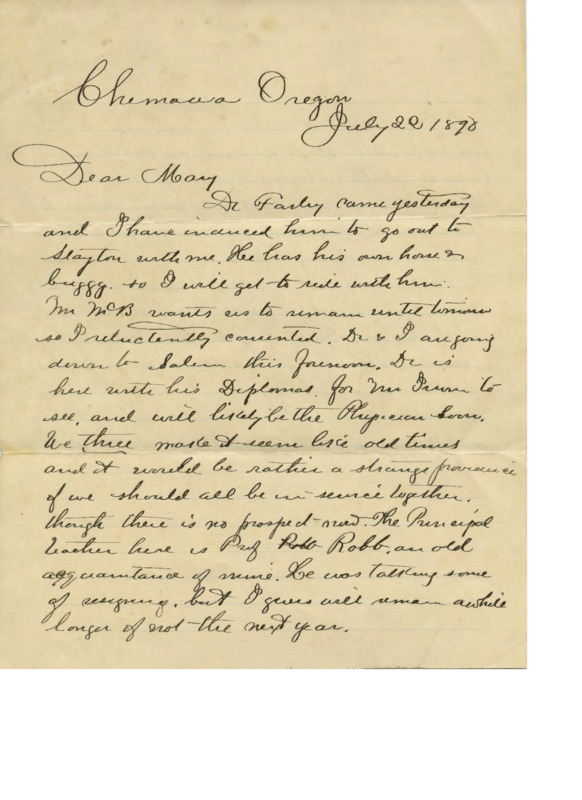 Chemawa Oregon
July 22 1890
Dear May
Dr Farley came yesterday
and I have induced him to go out to
Stayton with me. He has his own horse &
buggy. so I will get to ride with him.
Mr McB wants us to remain until tomorrow
so I reluctantly consented. Dr & I are going
down to Salem this forenoon. Dr is
here with his Diplomas. for Mr Irwin to
see, and will likely be the Physician soon.
We three make it seem like old times
and it would be rather a strange providence
if we should all be in service together.
though there is no prospect now. The Principal
teacher here is Prof Robb, an old
acquaintance of mine. He was talking some
of resigning. but I guess will remain awhile
longer if not the next year.